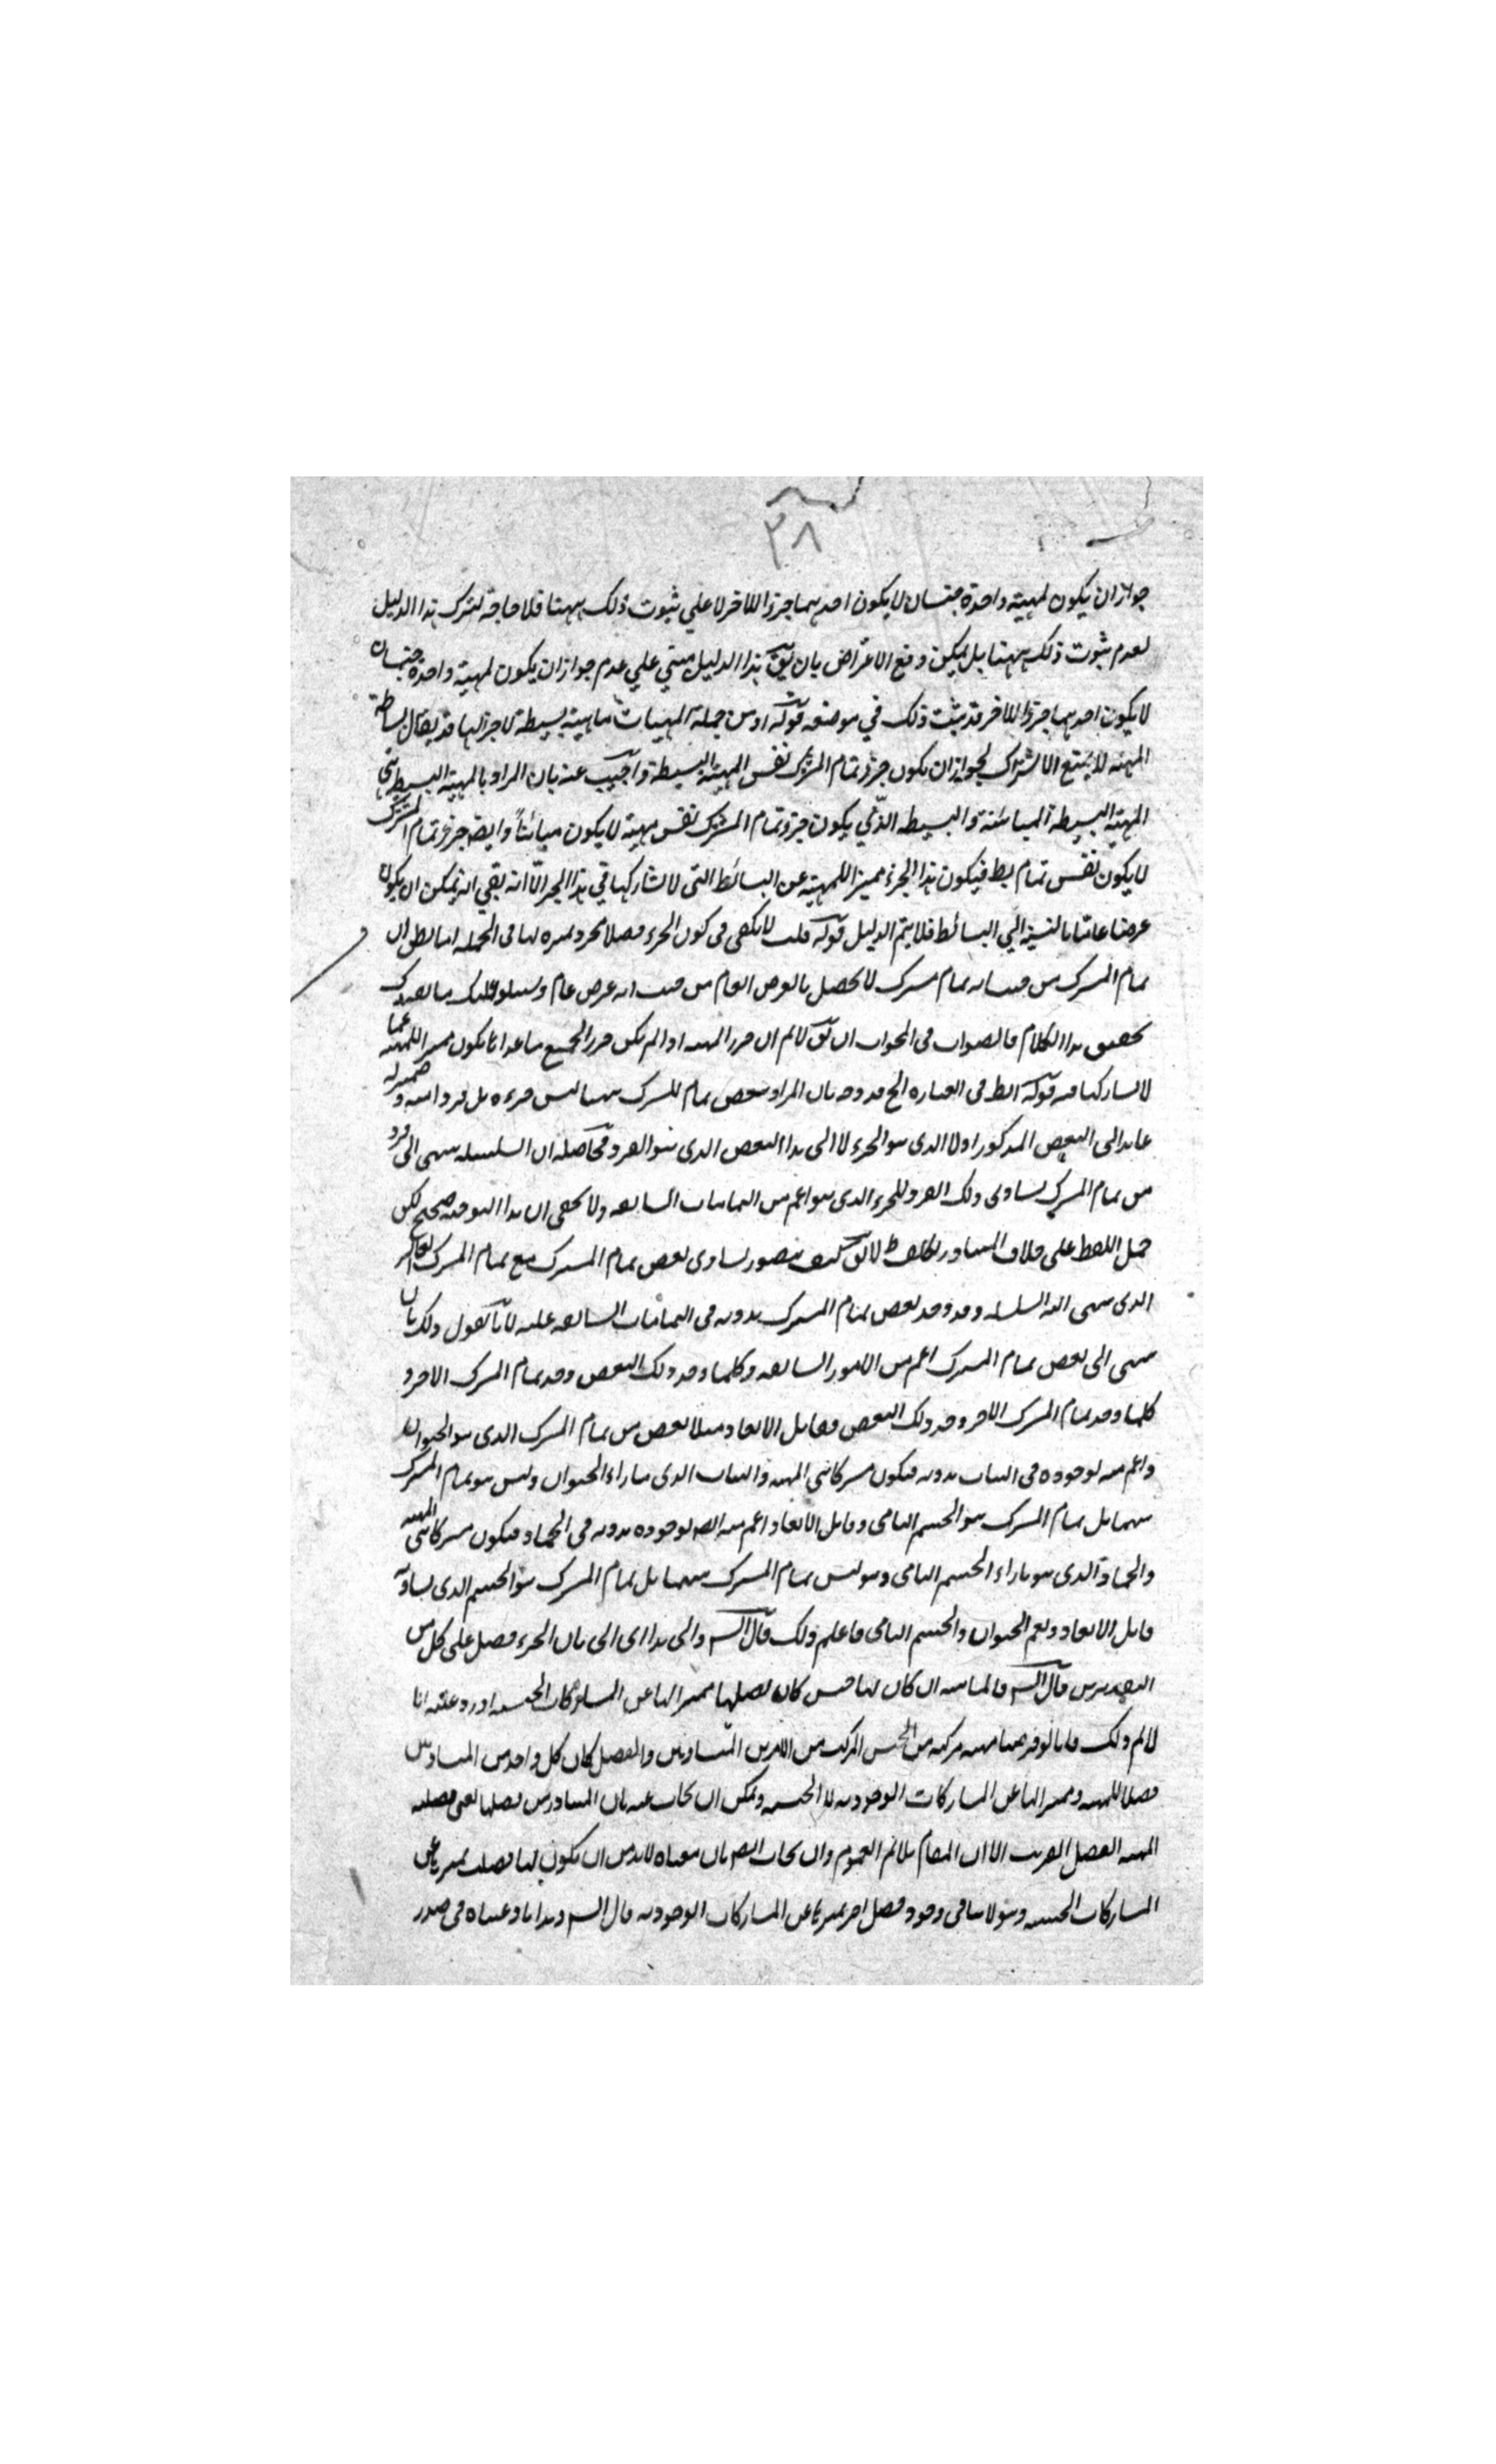 ٣٨
جواز ان يكون لمهية واحدة جنسان لا يكون احدهما جزؤا للاخر لا على ثبوت ذلك ههنا فلا حاجة لترك هذا الدليل
لعدم ثبوت ذلك ههنا بل يمكن دفع الاعتراض بان يق هذا الدليل مبني علي عدم جواز ان يكون لمهية واحدة جنسان
لا يكون احدهما جزؤا للاخر قد يثبت ذلك في موضعه قوله او من جملة المهيات ماهية بسيطة لا جزء لها قد يقال بساطة
المهية لا يمتنع الاشتراك لجواز ان يكون جزؤ تمام المشترك نفس المهية البسيطة واجيب عنه بان المراد بالمهية البسيطة هي
المهية البسيطة المباينة والبسيطة الذي يكون جزؤ تمام المشترك نفس مهية لا يكون مبائناً وايضا جزؤ تمام المشترك
لا يكون نفس تمام بسط فيكون هذا الجزء مميزا للمهية عن البسائط التى لا تشاركها في هذا الجزء الّا انه بقي انه يمكن ان يكون
عرضا عاما بالنسبة الي البسائط فلا يتم الدليل قوله قلت لا يكفى فى كون الجزء فصلا مجرد تميزه لها فى الجملة
تمام المشترك من حيث انه تمام مشترك لا يحصل بالعرض العام من حيث انه عرض عام
تحقيق هذا الكلام فالصواب فى الجواب ان يق لا نم ان جزء المهية اذا لم يكن جزء الجميع ما عداها يكون مميزا للمهية عما
لا يشاركها فيه قوله الط فى العبارة الخ قد وجه بان المراد ببعض تمام المشترك ههنا ليس جزءه بل فردا منه وضميره
عايد الى البعض المذكور اولا الذى هو الجزء لا الى هذا البعض الذى هو الفرد فحاصله ان السلسلة ينتهى الى فرد
من تمام المشترك يساوى ذلك الفرد للجزء الذى هو اعم من التمامات السابقة ولا يخفى ان هذا التوجيه صحيح لكن
حمل اللفظ على خلاف المتبادر لا يق كيف يتصور تساوى بعض تمام المشترك مع تمام المشترك الاخر
الذى ينتهى اليه السلسلة وقد وجد بعض تمام المشترك بدونه فى التمامات السابقة عليه لانا نقول ذلك بان
ينتهى الى بعض تمام المشترك اعم من الامور السابقة وكلما وجد ذلك البعض وجد تمام المشترك الاخر و
كلما وجد تمام المشترك الاخر وجد ذلك البعض وقابل الابعاد مثلا بعض من تمام المشترك الذى هو الحيوان
واعم منه لوجوده فى النبات بدونه فيكون مشتركا بين المهية والنبات الذى بازاء الحيوان وليس هو تمام المشترك
بينهما بل تمام المشترك هو الجسم النامى وقابل الابعاد اعم منه ايضا لوجوده بدونه فى الجماد فيكون مشتركا بين المهية
والجماد الذى هو بازاء الجسم النامى وهو ليس تمام المشترك بينهما بل تمام المشترك هو الجسم الذى يساويه
قابل الابعاد ويعم الحيوان والجسم النامى فاعلم ذلك قال الش والى هذا اى الى بان الجزء فصل على كل من
التقديرين قال الش فالماهية ان كان لها جنس كان فصلها مميزا لها عن المشاركات الجنسية اورد عليه انا
لا نم ذلك فانا لو فرضنا مهية مركبة من الجنس المركب من الامرين المتساويين والفصل كان كل واحد من المتساويين
فصلا للمهية ومميزا لها عن المشاركات الوجودية لا الجنسية ويمكن ان يجاب عنه بان المتبادر من فصلها
المهية الفصل القريب الا ان المقام يلائم العموم وان يجاب ايضا بان معناه لا بد من ان يكون لها فصل يميزها عن
المشاركات الجنسية وهو لا ينافى وجود فصل اخر يميزها عن المشاركات الوجودية قال الش وهذا ما وعدناه فى صدر